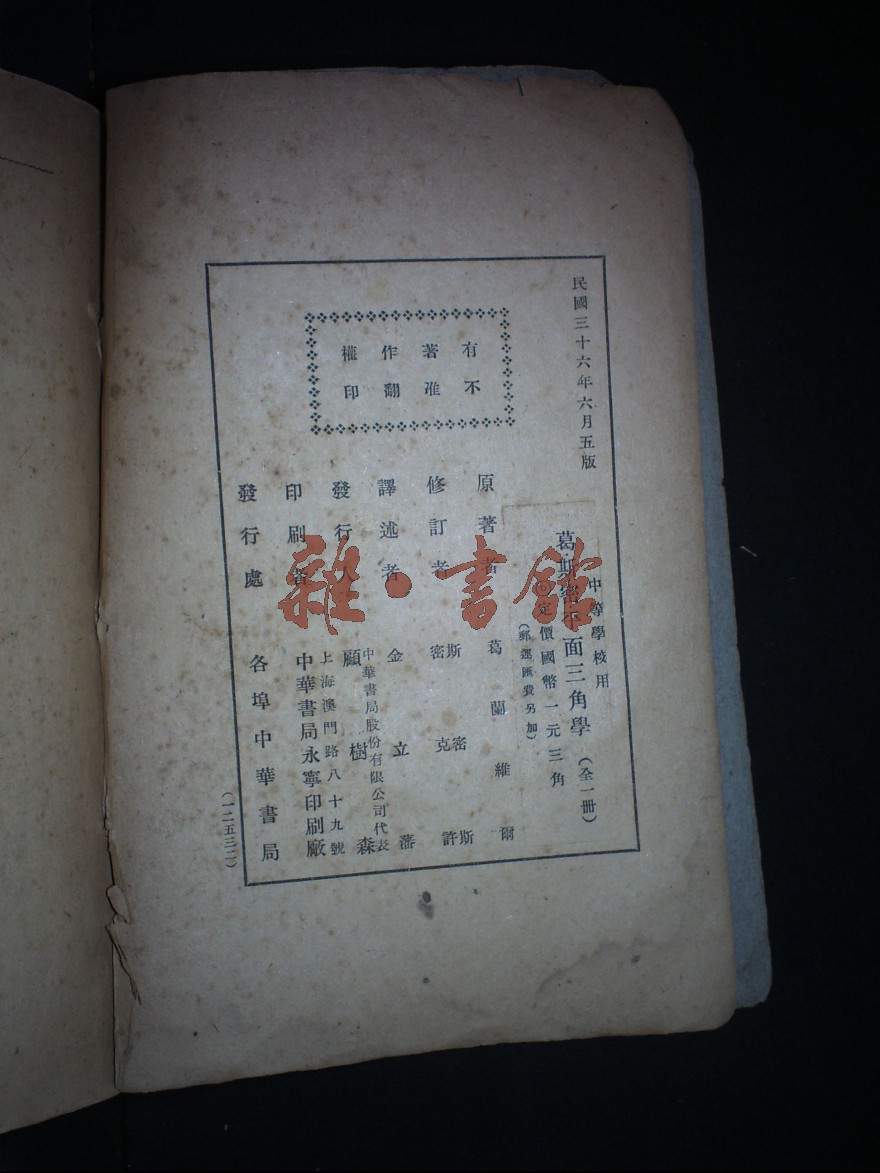 民國三十六年六月五版
有著作權
不准翻印
中等學校用
葛斯密平面三角學（全一冊）
◎定價國幣一元三角
（郵運匯費另加）
原著者 葛蘭維爾
修訂者 斯密斯
密克許
譯述者 金立藩
發行人 中華書局股份有限公司代表
顧樹森
印刷者 上海澳門路八十九號
中華書局永寧印刷廠
發行處 各埠中華書局
（一二五三二）
雜·書館